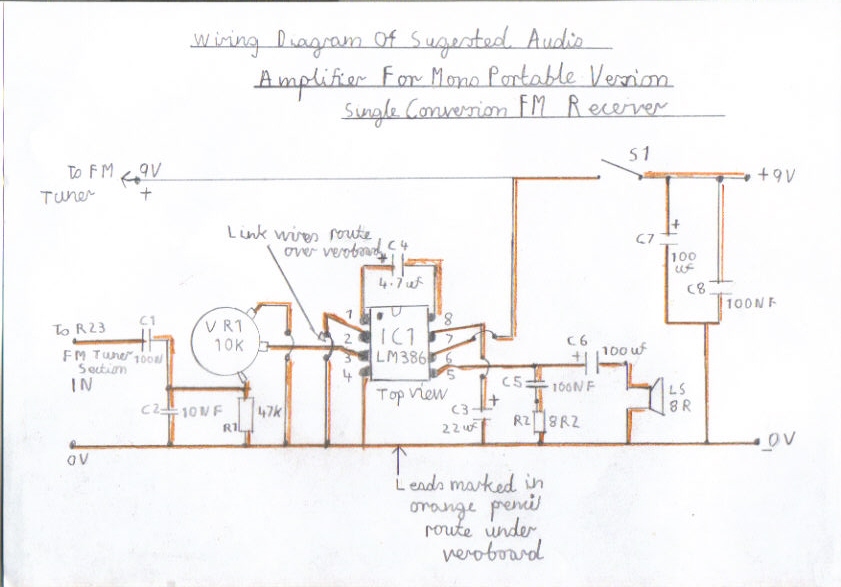 Wiring Diagram Of Sugested Audio
Amplifier For Mono Portable Version
Single Conversion FM Receiver
S1
To FM
Tuner
9V
+
+9V
Link wires route
over veroboard
C4
+
4.7uf
C7
+
100
uf
C8
100NF
To R23
FM Tuner
Section
IN
C1
100N
VR1
10K
1
2
3
4
U
IC1
LM386
8
7
6
5
Top View
C6
+
100uf
C5
100NF
LS
8R
C2
10NF
R1
47k
C3
+
22uf
R2
8R2
0V
-0V
Leads marked in
orange pencil
route under
veroboard